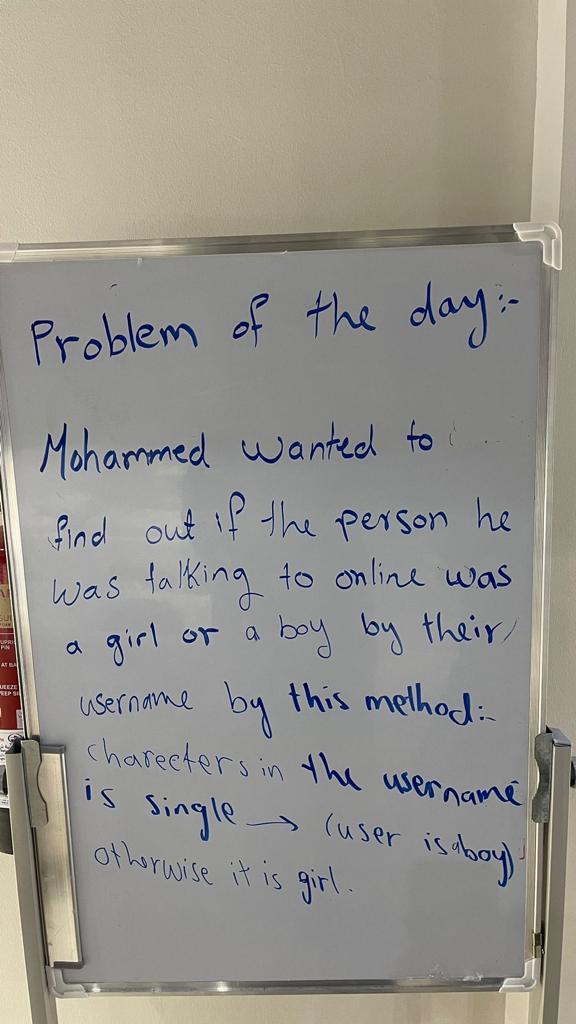 Problem of the day:-
Mohammed wanted to
find out if the person he
was talking to online was
a girl or a boy by their
username by this method:-
charecters in the username
is single → (user is a boy)
otherwise it is girl.